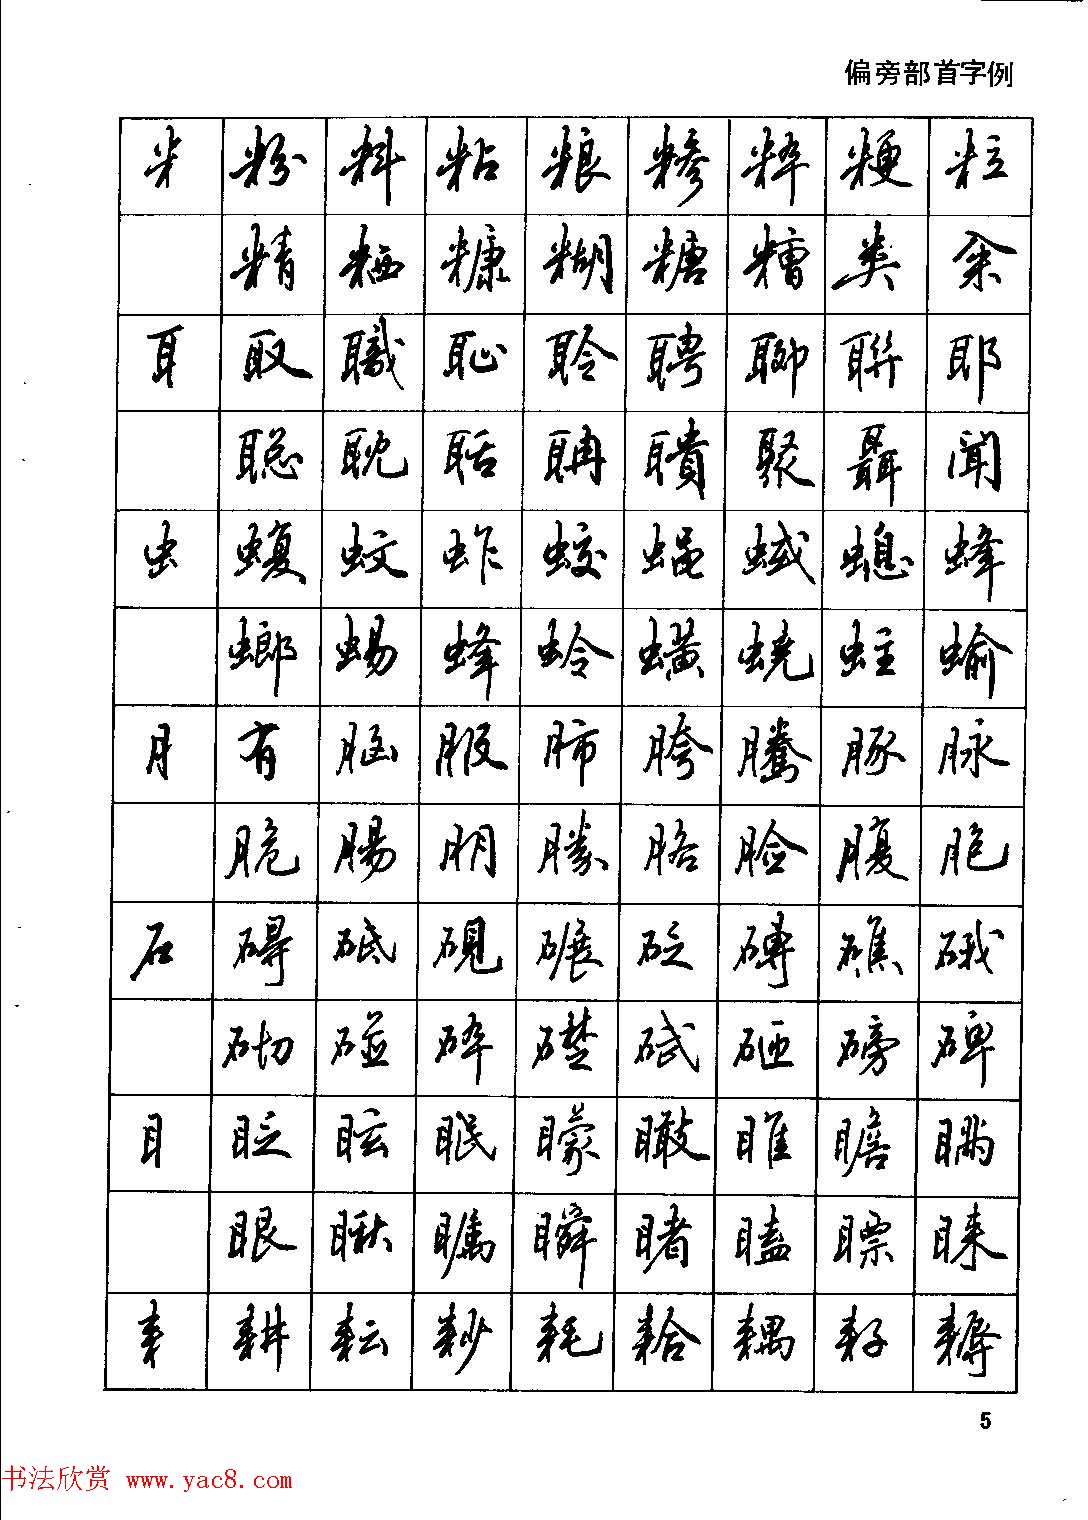 偏旁部首字例
米 粉 料 粘 粮 糁 粹 粳 粒
精 粞 糠 糊 糖 糟 类 籴
耳 取 職 耻 聆 聘 聊 聯 耶
聪 耽 聒 聃 聩 聚 聶 闻
虫 蝮 蚊 蚱 蛟 蝇 蜮 螅 蜂
螂 蜴 蜂 蛉 蟥 蛲 蛀 蝓
月 有 脑 服 肺 胯 腾 豚 脉
脆 腸 朋 胳 脸 腹 胞
石 碍 砥 硯 碾 砭 磚 礁 硪
砌 碰 碎 礎 砥 砸 磅 碑
目 眨 眩 眠 矇 瞰 睢 瞻
眼 瞅 瞩 瞬 睹 瞌 瞟 睐
耒 耕 耘 耖 耗 耠 耦 耔 耨
5
书法欣赏 www.yac8.com